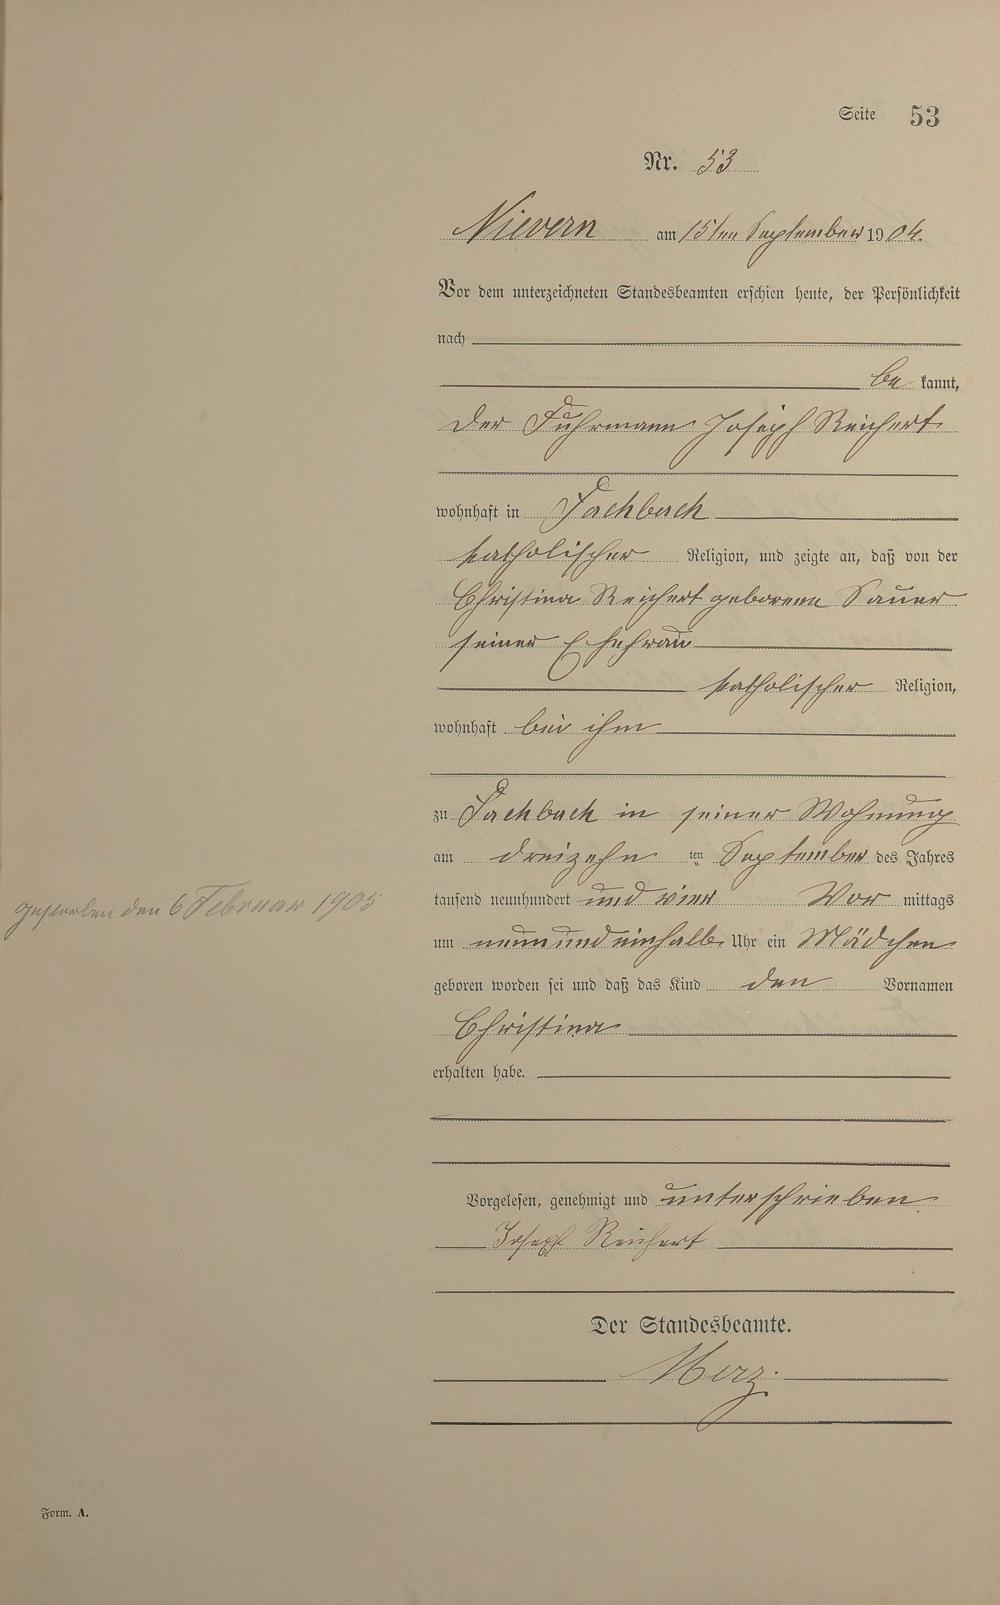 Seite 53
Nr. 53
Nievern am 15ten September 1904.
Vor dem unterzeichneten Standesbeamten erschien heute, der Persönlichkeit
nach
be kannt,
der Fuhrmann Joseph Reichert
wohnhaft in Fachbach
katholischer Religion, und zeigte an, daß von der
Christina Reichert geborene Sauer
seiner Ehefrau
katholischer Religion,
wohnhaft bei ihm
zu Fachbach in seiner Wohnung
am dreizehn ten September des Jahres
tausend neunhundert und vier Vor mittags
gestorben den 6 Februar 1905
um neun und einhalb Uhr ein Mädchen
geboren worden sei und daß das Kind den Vornamen
Christina
erhalten habe.
Vorgelesen, genehmigt und unterschrieben
Joseph Reichert
Der Standesbeamte.
Merz.
Form. A.